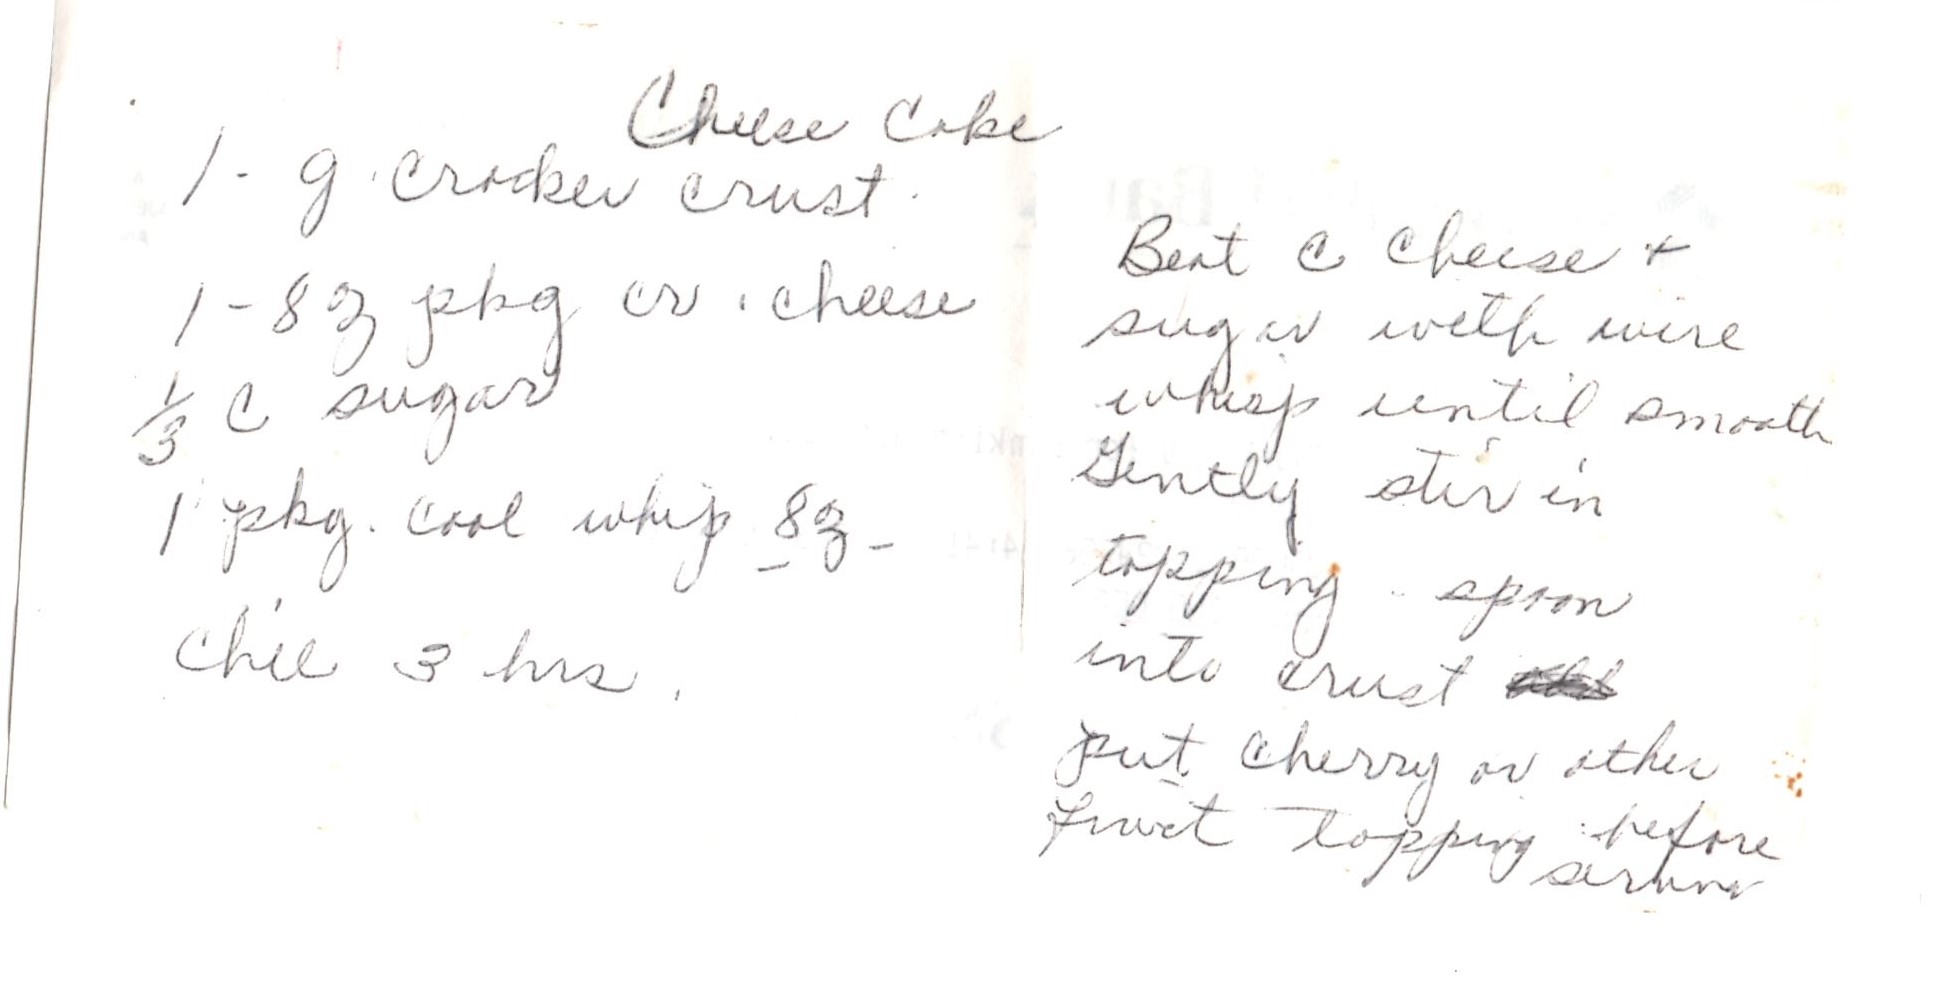 Cheese Cake
1 - g. cracker crust.
1 - 8 oz pkg cr. cheese
1/3 C sugar
1 pkg. cool whip 8 oz -
chill 3 hrs.
Beat C Cheese +
sugar with wire
whisp until smooth
Gently stir in
topping - spoon
into crust
put cherry or other
fruit topping before
serving